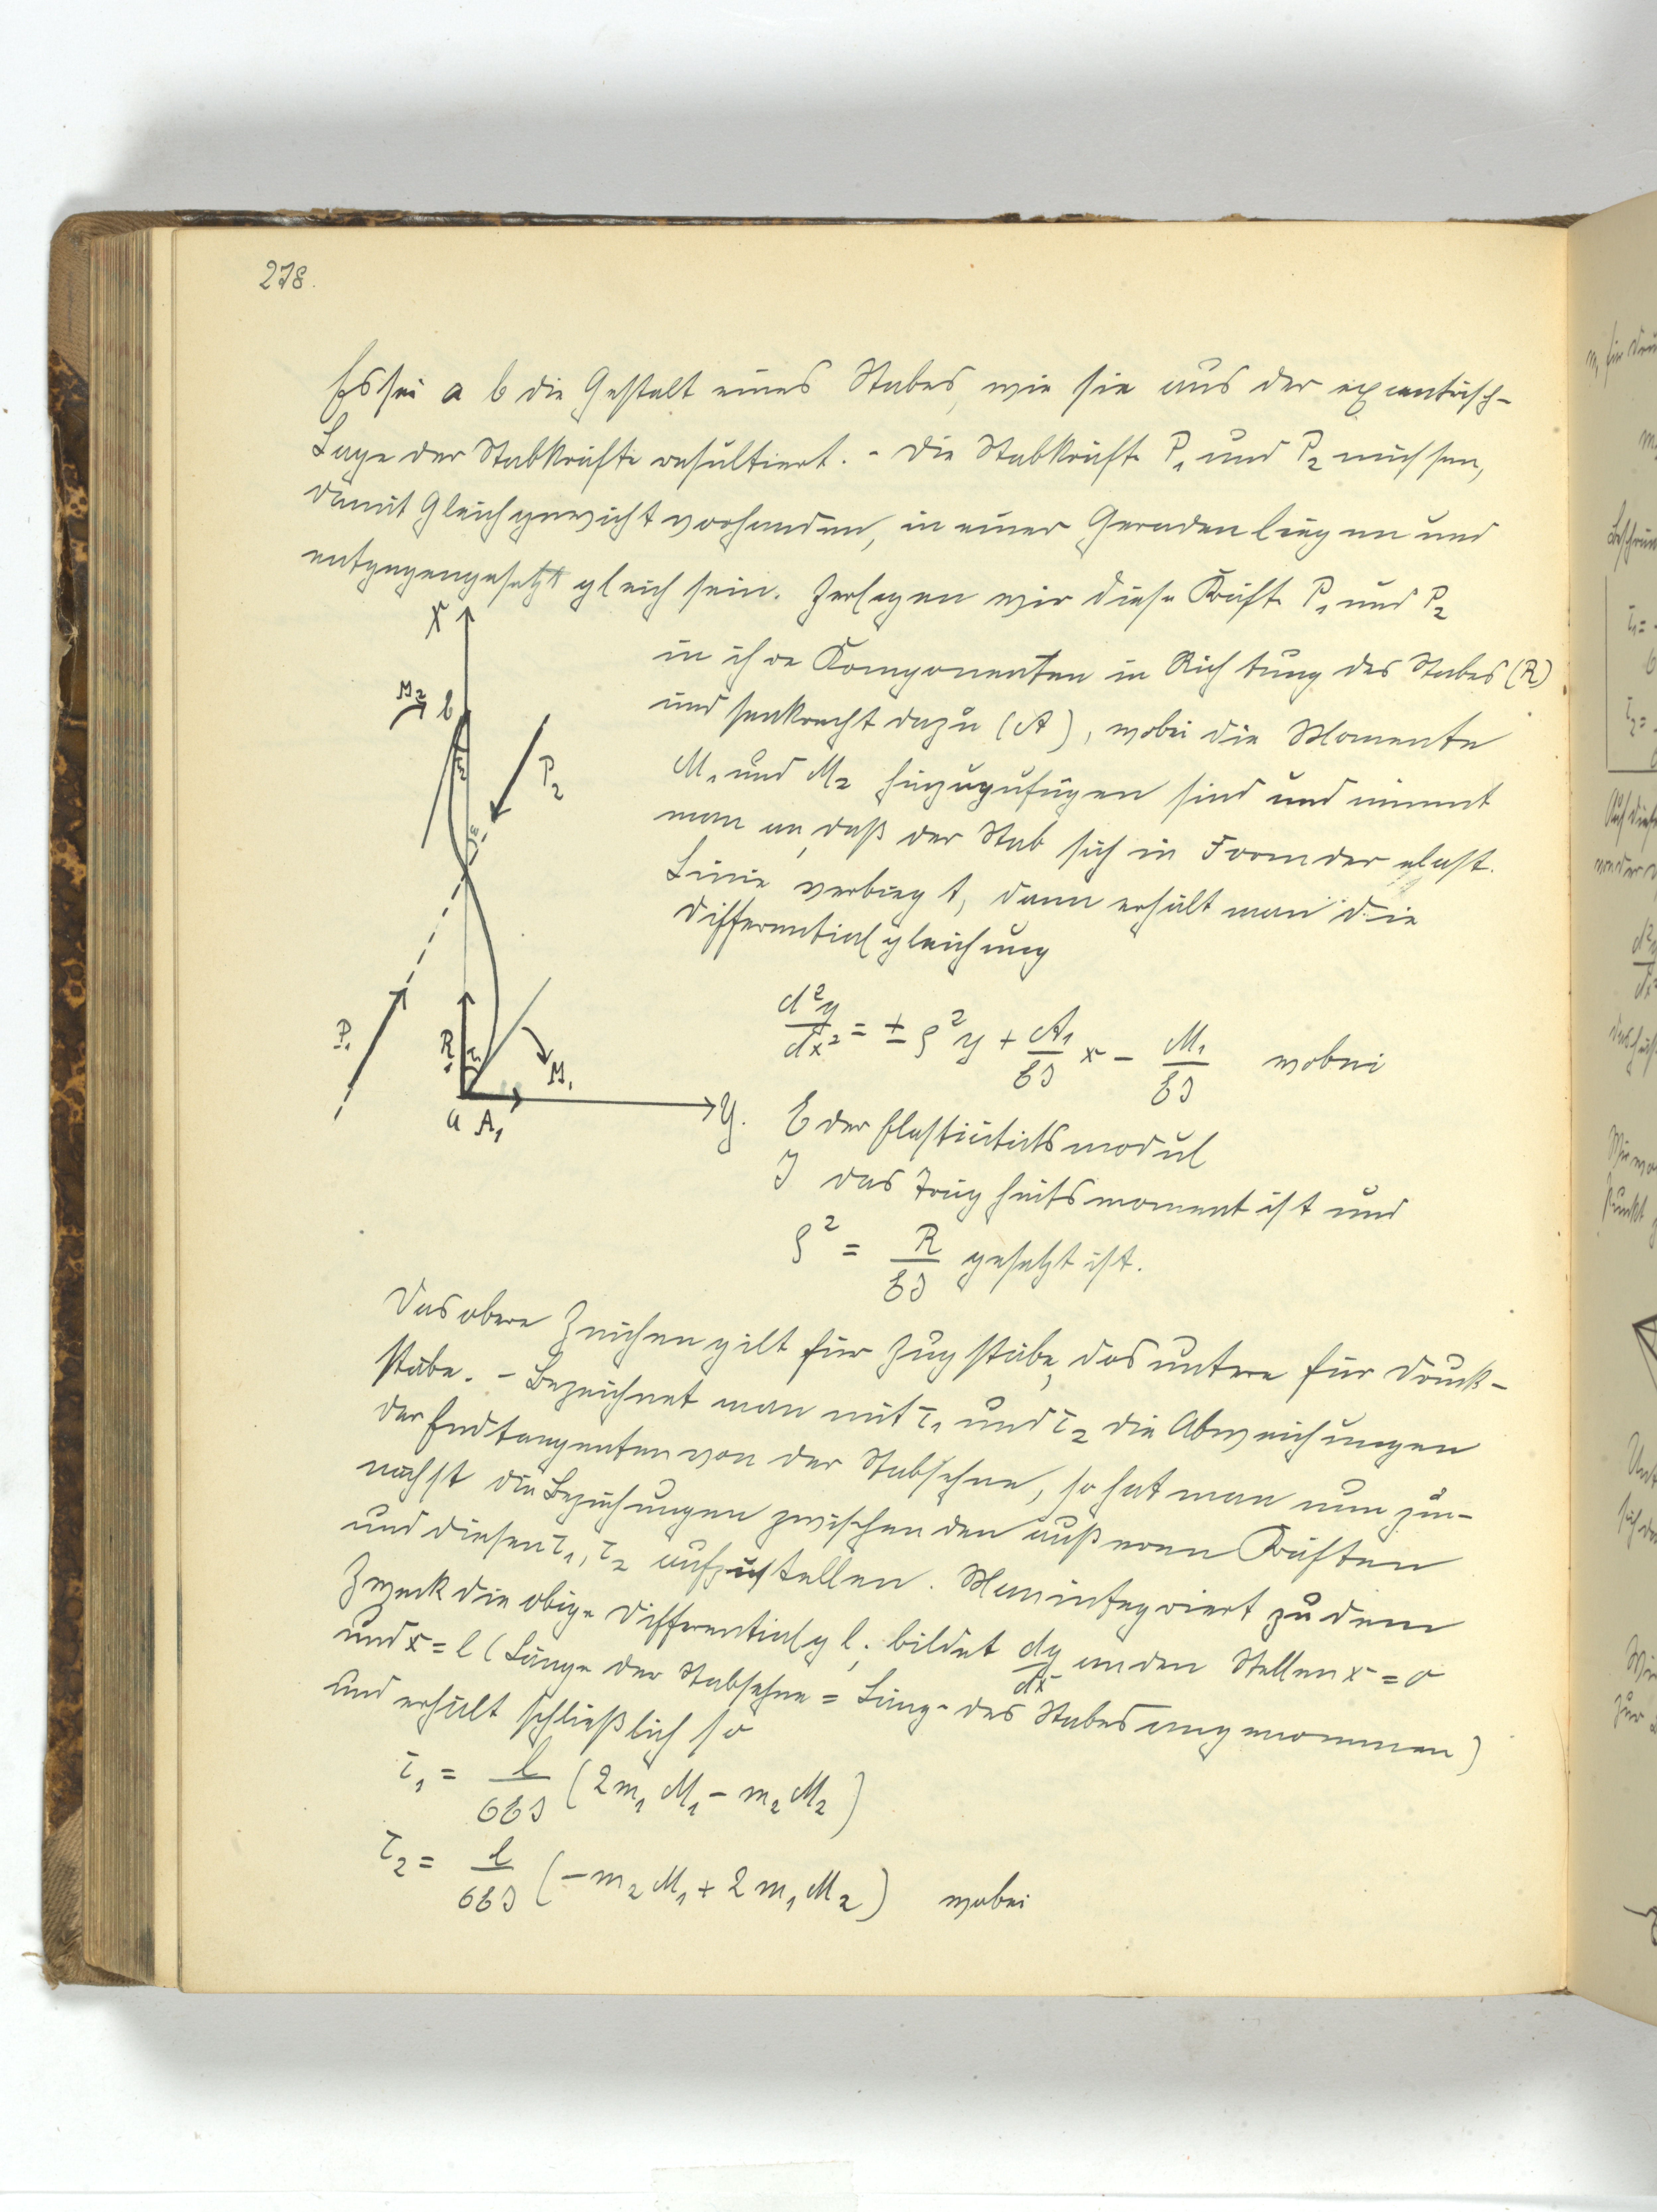 278.
Es sei a b die Gestalt eines Stabes, wie sie aus der exzentrisch-
Lage der Stabkräfte resultiert. - Die Stabkräfte P₁ und P₂ müssen,
damit Gleichgewicht vorhanden, in einer Geraden liegen und
entgegengesetzt gleich sein. Zerlegen wir diese Kräfte P₁ und P₂
in ihre Komponenten in Richtung des Stabes (R)
und senkrecht dazu (A), wobei die Momente
M₁ und M₂ hinzuzufügen sind und nimmt
man an, daß der Stab sich in Form der elast.
Linie verbiegt, dann erhält man die
Differentialgleichung
d²y/dx² = ± ρ²y + A₁/EJ x - M₁/EJ wobei
E der Elastizitätsmodul
J das Trägheitsmoment ist und
ρ² = R/EJ gesetzt ist.
X
M₂ b
τ₂
P₂
P₁
R₁ τ₁
M₁
a A₁
y.
Das obere Zeichen gilt für Zugstäbe, das untere für Druck-
stäbe. - Bezeichnet man mit τ₁ und τ₂ die Abweichungen
der Endtangenten von der Stabsehne, so hat man nun zu-
nächst die Beziehungen zwischen den äußeren Kräften
und diesen τ₁, τ₂ aufzustellen. Man integriert zu dem
Zweck die obige Differentialgl., bildet dy/dx an den Stellen x = 0
und x = l (Länge der Stabsehne = Länge des Stabes angenommen)
und erhält schließlich so
τ₁ = l/6EJ (2m₁ M₁ - m₂ M₂)
τ₂ = l/6EJ (-m₂ M₁ + 2 m₁ M₂) wobei